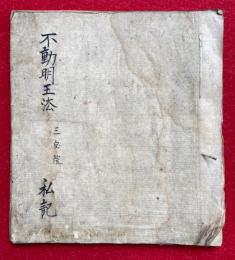 不動明王法
三宝院
私記